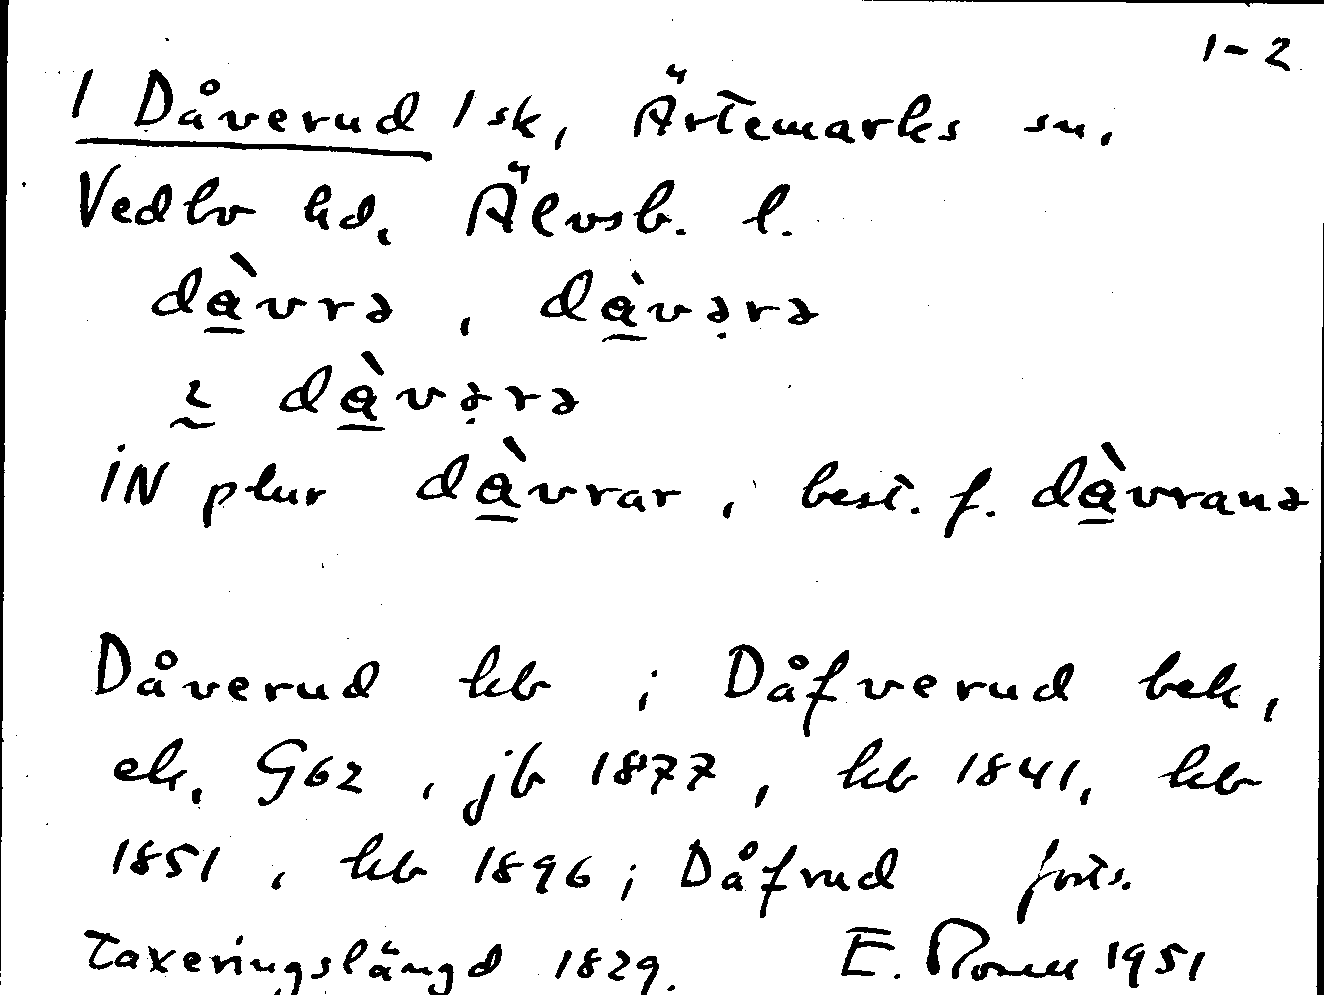 1-2
1 Dåverud 1 sk, Ärtemarks sn.
Vedbo hd, Älvsb. l.
dàvrə, dàvə̣rə
2 dàvə̣rə
iN plur dàvrar, best. f. dàvranə
Dåverud kb; Dåfverud bek,
ek, G62, jb 1877, kb 1841, kb
1851, kb 1896; Dåfrud forts.
taxeringslängd 1829. E. 1951